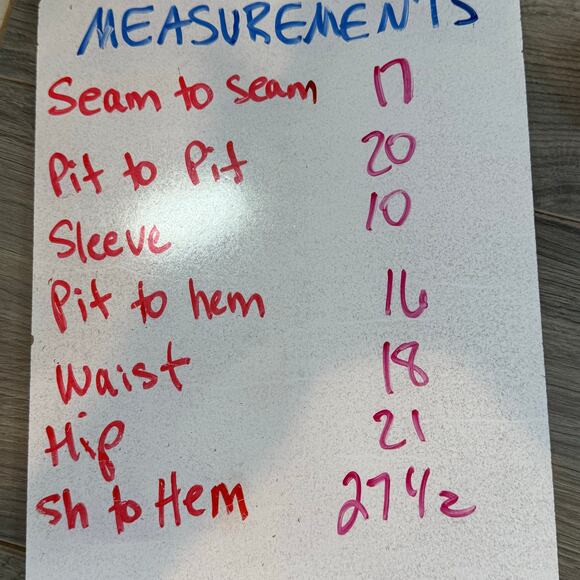 MEASUREMENTS
Seam to seam 17
Pit to Pit 20
Sleeve 10
Pit to hem 16
Waist 18
Hip 21
sh to Hem 27 1/2